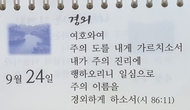 경외
여호와여
주의 도를 내게 가르치소서
내가 주의 진리에
행하오리니 일심으로
주의 이름을
경외하게 하소서(시 86:11)
9월 24일